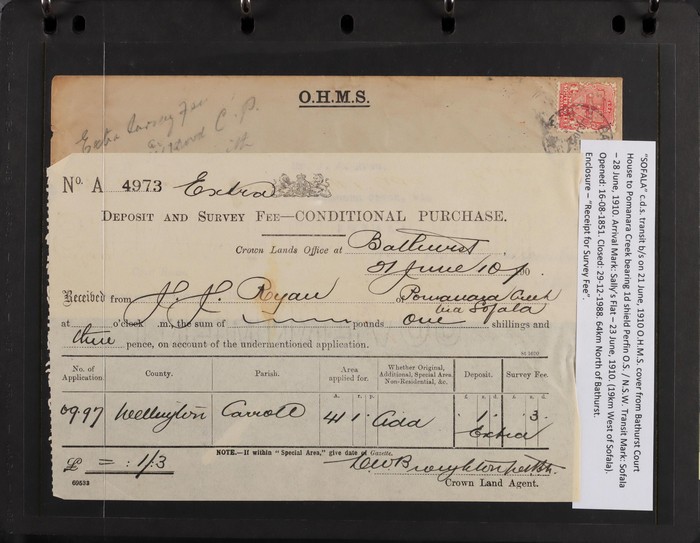 O.H.M.S.
Extra Survey Fee
C.P.
No. A 4973 Extra
DEPOSIT AND SURVEY FEE—CONDITIONAL PURCHASE.
Crown Lands Office at Bathurst
21 June 10
Received from J. J. Ryan of Pomanara Creek
via Sofala
at o'clock .m., the sum of pounds one shillings and
three pence, on account of the undermentioned application.
No. of Application. County. Parish. Area applied for. Whether Original, Additional, Special Area, Non-Residential, &c. Deposit. Survey Fee.
a. r. p. £ s. d. £ s. d.
09.97 Wellington Carroll 41 1. Add 1. 3.
Extra
£ = : 1/3
NOTE.—If within "Special Area," give date of Gazette.
Crown Land Agent.
69533
"SOFALA" c.d.s. transit b/s on 21 June, 1910 O.H.M.S. cover from Bathurst Court
House to Pomanara Creek bearing 1d shield Perfin O.S. / N.S.W. Transit Mark: Sofala
– 28 June, 1910. Arrival Mark: Sally's Flat – 23 June, 1910. (19km West of Sofala).
Opened: 16-08-1851. Closed: 29-12-1988. 64km North of Bathurst.
Enclosure – "Receipt for Survey Fee".